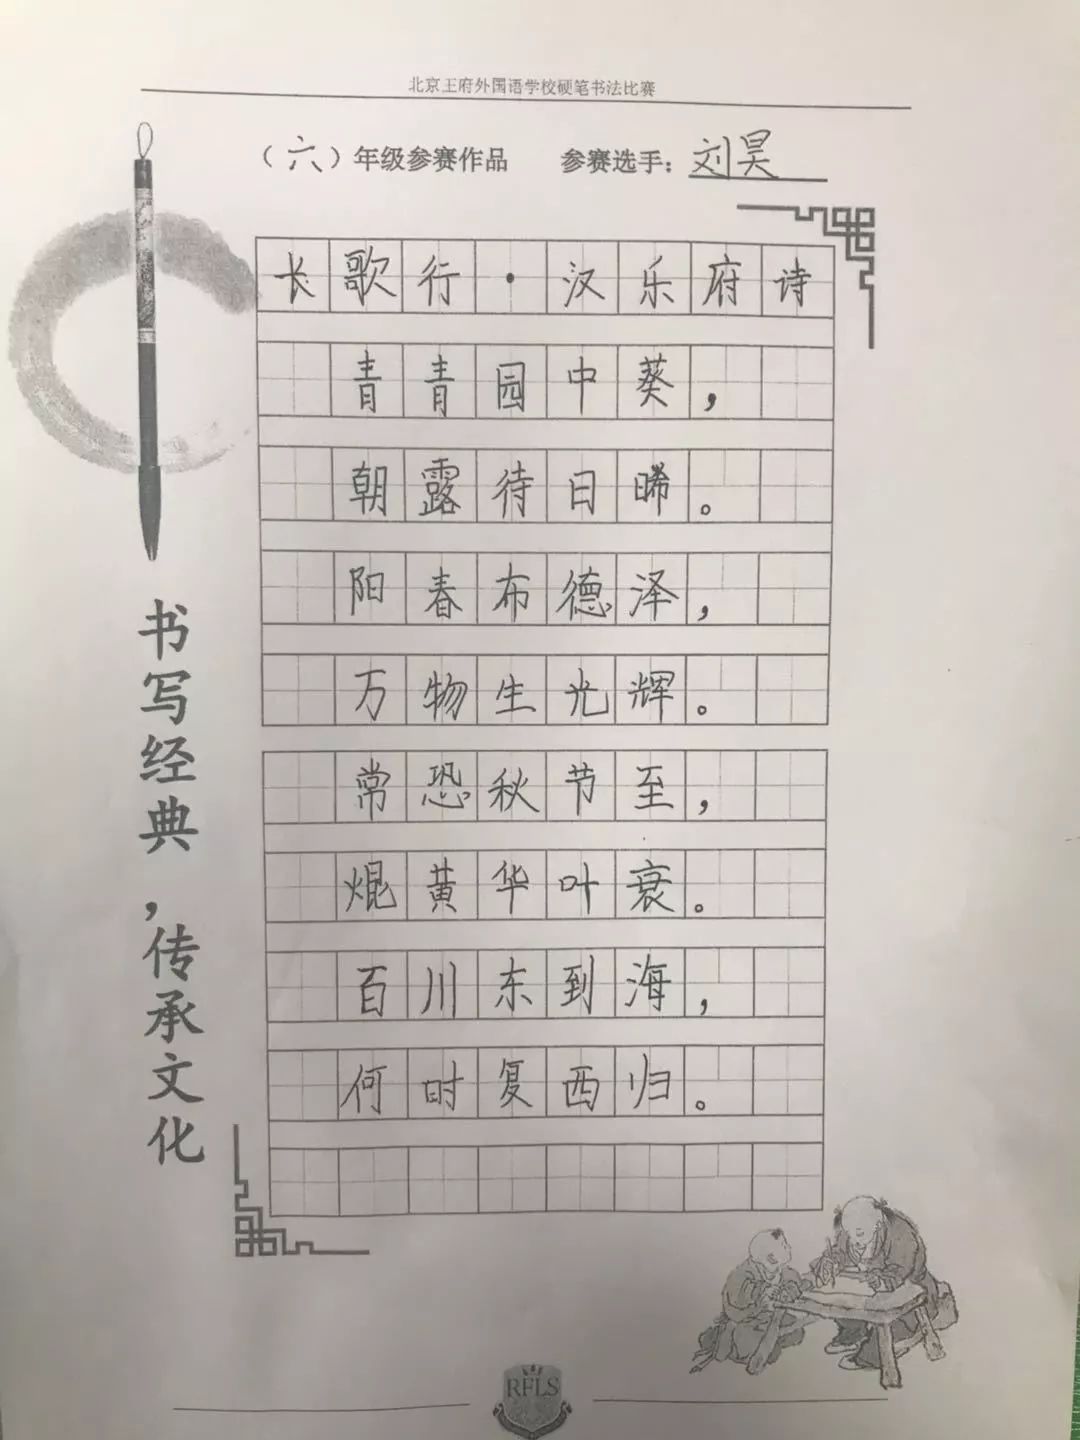 北京王府外国语学校硬笔书法比赛
（六）年级参赛作品 参赛选手：刘昊
长歌行·汉乐府诗
青青园中葵，
朝露待日晞。
阳春布德泽，
万物生光辉。
常恐秋节至，
焜黄华叶衰。
百川东到海，
何时复西归。
书写经典，传承文化
RFLS